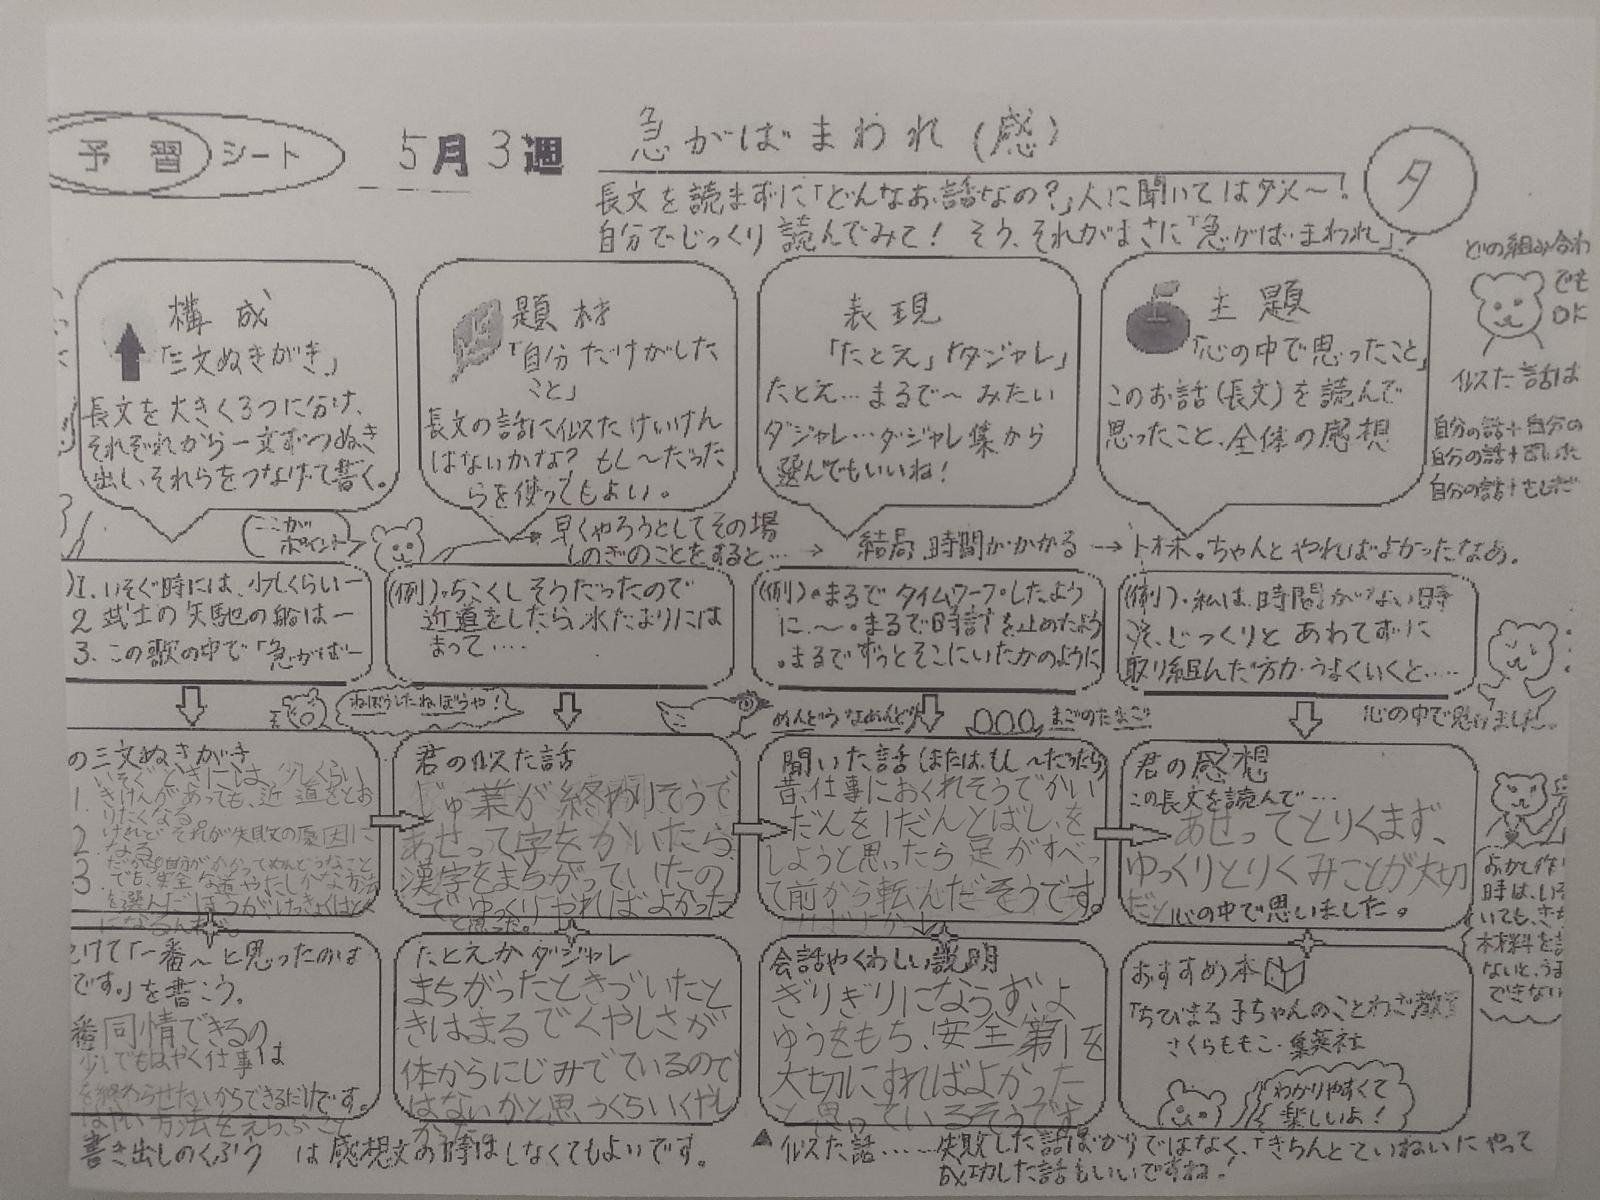 予習シート
5月3週
急がばまわれ(感)
タ
長文を読まずに「どんなお話なの?」人に聞いてはダメ〜!
自分でじっくり読んでみて! そう、それがまさに「急がばまわれ」!
構成
「三文ぬきがき」
長文を大きく3つに分け、
それぞれから一文ずつぬき
出し、それらをつなげて書く。
題材
「自分だけがした
こと」
長文の話に似たけいけん
はないかな? もし〜だった
らを使ってもよい。
表現
「たとえ」「ダジャレ」
たとえ…まるで〜みたい
ダジャレ…ダジャレ集から
選んでもいいね!
主題
「心の中で思ったこと」
このお話(長文)を読んで
思ったこと、全体の感想
どの組み合わ
でも
OK
似た話は
自分の話+自分の
自分の話+聞いた
自分の話+もしだ
ここが
ポイント
早くやろうとしてその場
しのぎのことをすると…→
結局、時間がかかる→
トホホ。ちゃんとやればよかったなあ。
1. いそぐ時には、少しくらいー
2 武士の矢馳の船はー
3. この歌の中で「急がばー
(例)・ちこくしそうだったので
近道をしたら、水たまりには
まって‥‥
(例)・まるでタイムワープしたよう
に、〜。まるで時計を止めたよう
・まるでずっとそこにいたかのように
(例)・私は、時間がない時
こそ、じっくりとあわてずに
取り組んだ方がうまくいくと‥‥
ねぼうしたねぼうや!
めんどうなめんどり
まごのたまご
心の中で思いました。
の三文ぬきがき
1. いそぐときには、少しくらい
きけんがあっても、近道をとお
りたくなる。
2. けれど それが失敗の原因に
なる
3. だから。自分がかかってめんどうなこと
でも、安全な道やたしかな方法
を選んだほうがけっきょくはとく
になるんだ。
君の似た話
じゅ業が終わりそうで
あせって字をかいたら、
漢字をまちがっていたの
で ゆっくりやればよかった
と思った。
聞いた話(または、もし〜だったら)
昔、仕事におくれそうでかい
だんを1だんとばしを
しようと思ったら足がすべっ
て前から転んだそうです。
君の感想
この長文を読んで…
あせってとりくまず、
ゆっくりとりくみことが大切
だと心の中で思いました。
時は、いそ
いても、さち
材料を
ないと、うま
できない
けて「一番〜と思ったのは
です。」を書こう。
番同情できるの
少しでもはやく仕事は
を終わらせたいからできるだけです。
はやい方法をえらぶこと
たとえかダジャレ
まちがったときづいたと
きはまるでくやしさが
体からにじみでているので
はないかと思うくらいくやし
かった。
会話やくわしい説明
ぎりぎりにならず、よ
ゆうをもち、安全第1を
大切にすればよかった
と思っているそうです
おすすめ本
「ちびまる子ちゃんのことわざ教室
さくらももこ・集英社
わかりやすくて
楽しいよ!
書き出しのくふう は感想文の時はしなくてもよいです。
▲似た話……失敗した話ばかりではなく、「きちんとていねいにやって
成功した話もいいですね!